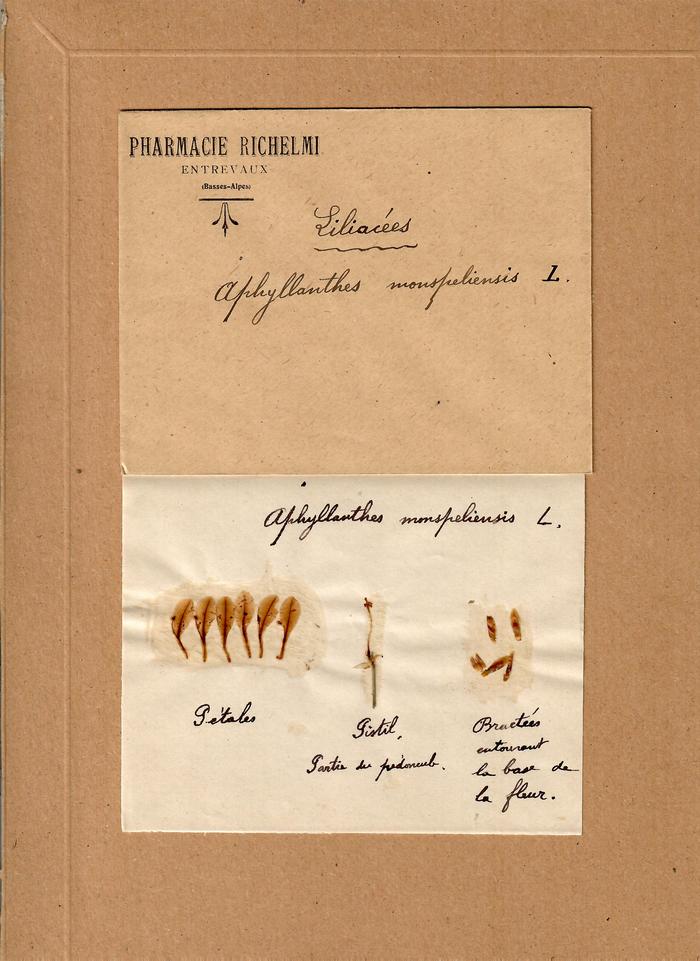 PHARMACIE RICHELMI
ENTREVAUX
(Basses-Alpes)
Liliacées
Aphyllanthes monspeliensis L.
Aphyllanthes monspeliensis L.
Pétales
Pistil,
Partie du pédoncule.
Bractées
entourant
la base de
la fleur.